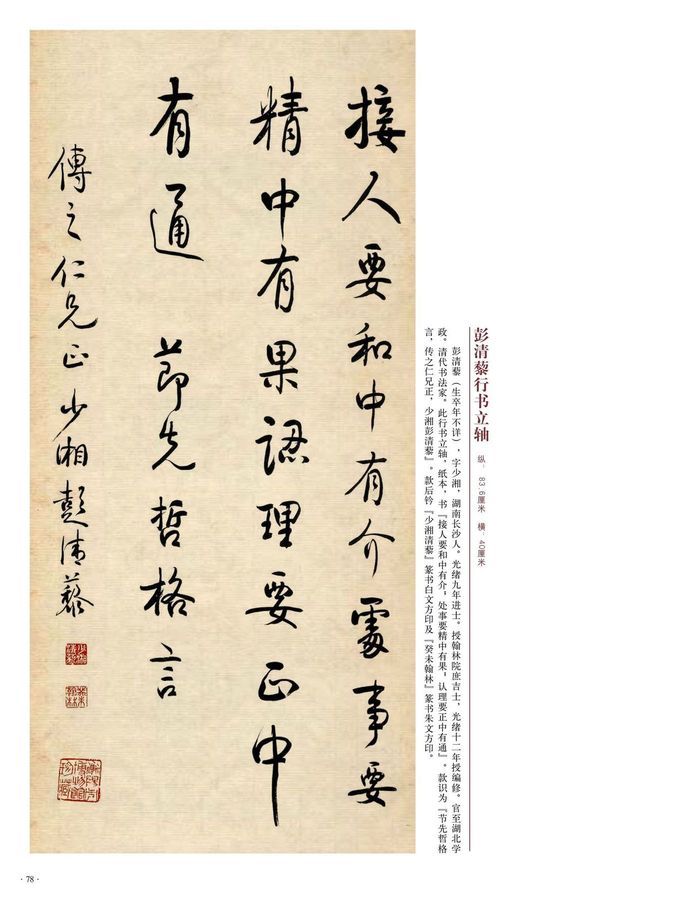 彭清藜行书立轴
纵：83.6厘米 横：40厘米
彭清藜（生卒年不详），字少湘，湖南长沙人。光绪九年进士。授翰林院庶吉士，光绪十二年授编修。官至湖北学
政。清代书法家。此行书立轴，纸本，书『接人要和中有介，处事要精中有果，认理要正中有通』。款识为『节先哲格
言，传之仁兄正，少湘彭清藜』。款后钤『少湘清藜』篆书白文方印及『癸未翰林』篆书朱文方印。
接人要和中有介處事要
精中有果認理要正中
有通 節先哲格言
傳之仁兄正少湘彭清藜
少湘清藜
癸未翰林
·78·